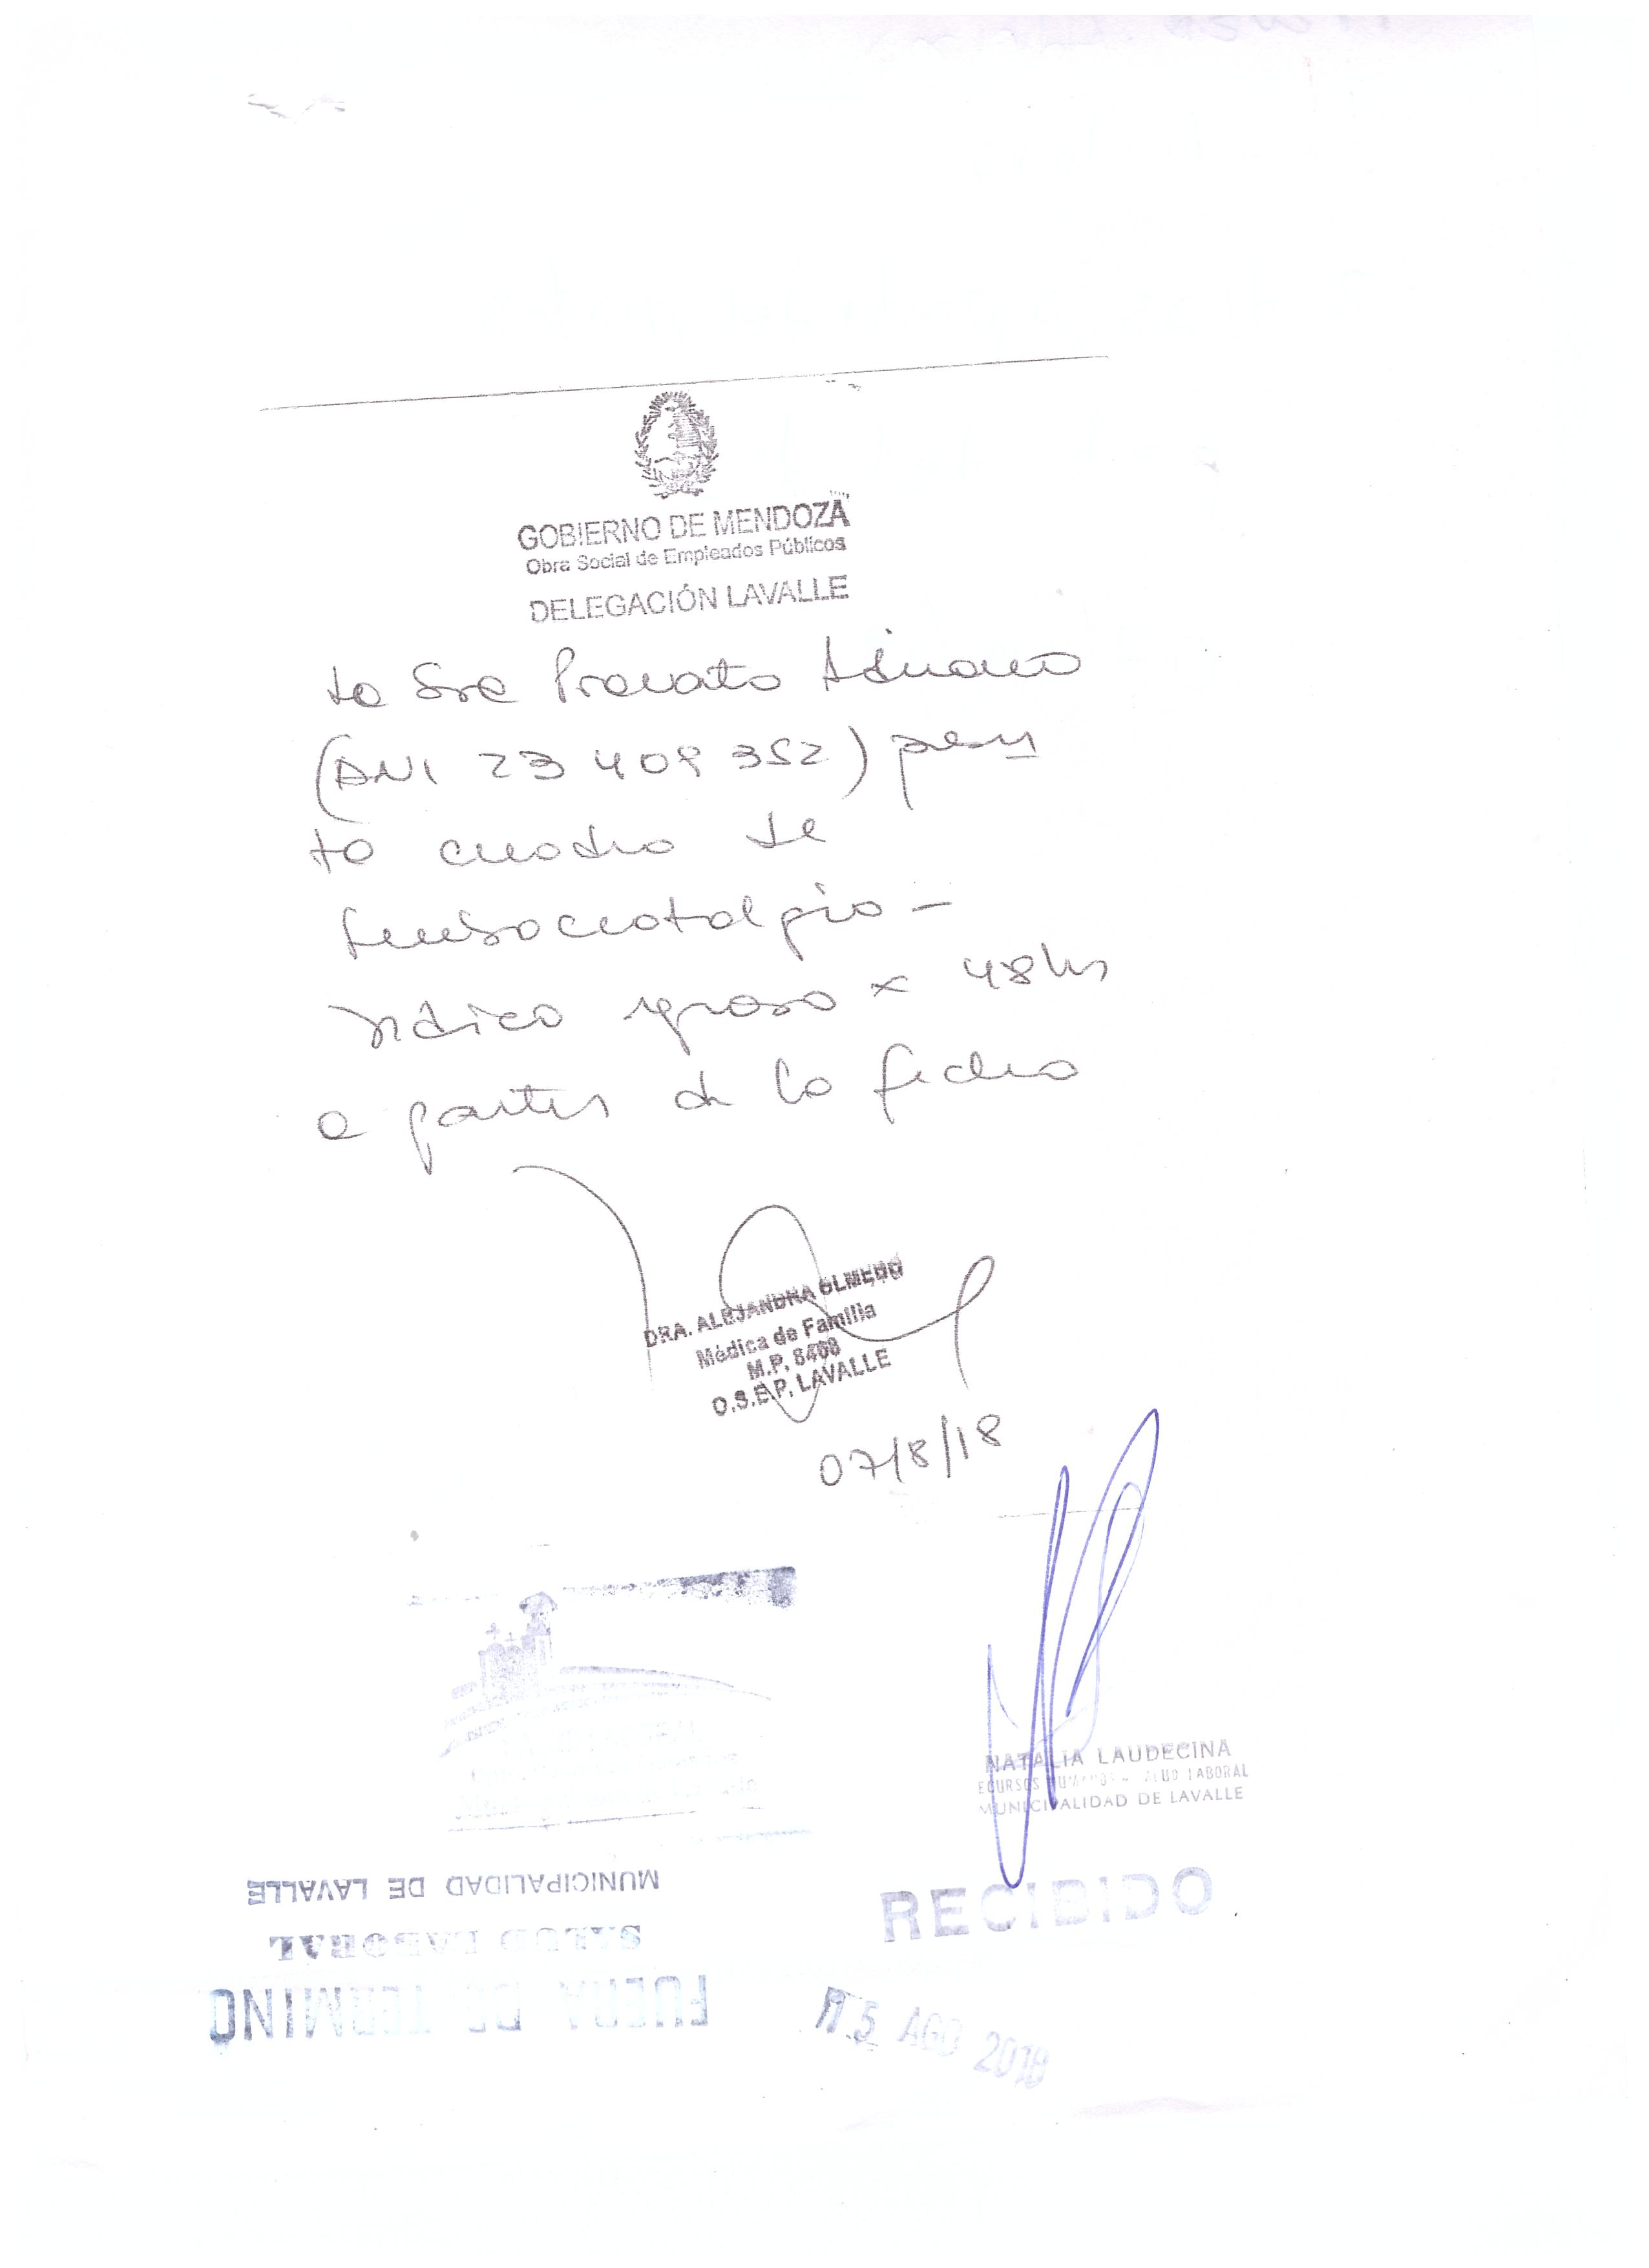 GOBIERNO DE MENDOZA
Obra Social de Empleados Públicos
DELEGACIÓN LAVALLE
La Sra Provato Adriana
(DNI 23 409 352) presen
ta cuadro de
lumbociatalgia -
Indico reposo x 48hs
a partir de la fecha
DRA. ALEJANDRA OLMEDO
Médica de Familia
M.P. 8468
O.S.E.P. LAVALLE
07/8/18
NATALIA LAUDECINA
ECURSOS HUMANOS - SALUD LABORAL
MUNICIPALIDAD DE LAVALLE
RECIBIDO
AGO 2018
MUNICIPALIDAD DE LAVALLE
SALUD LABORAL
FUERA DE TERMINO